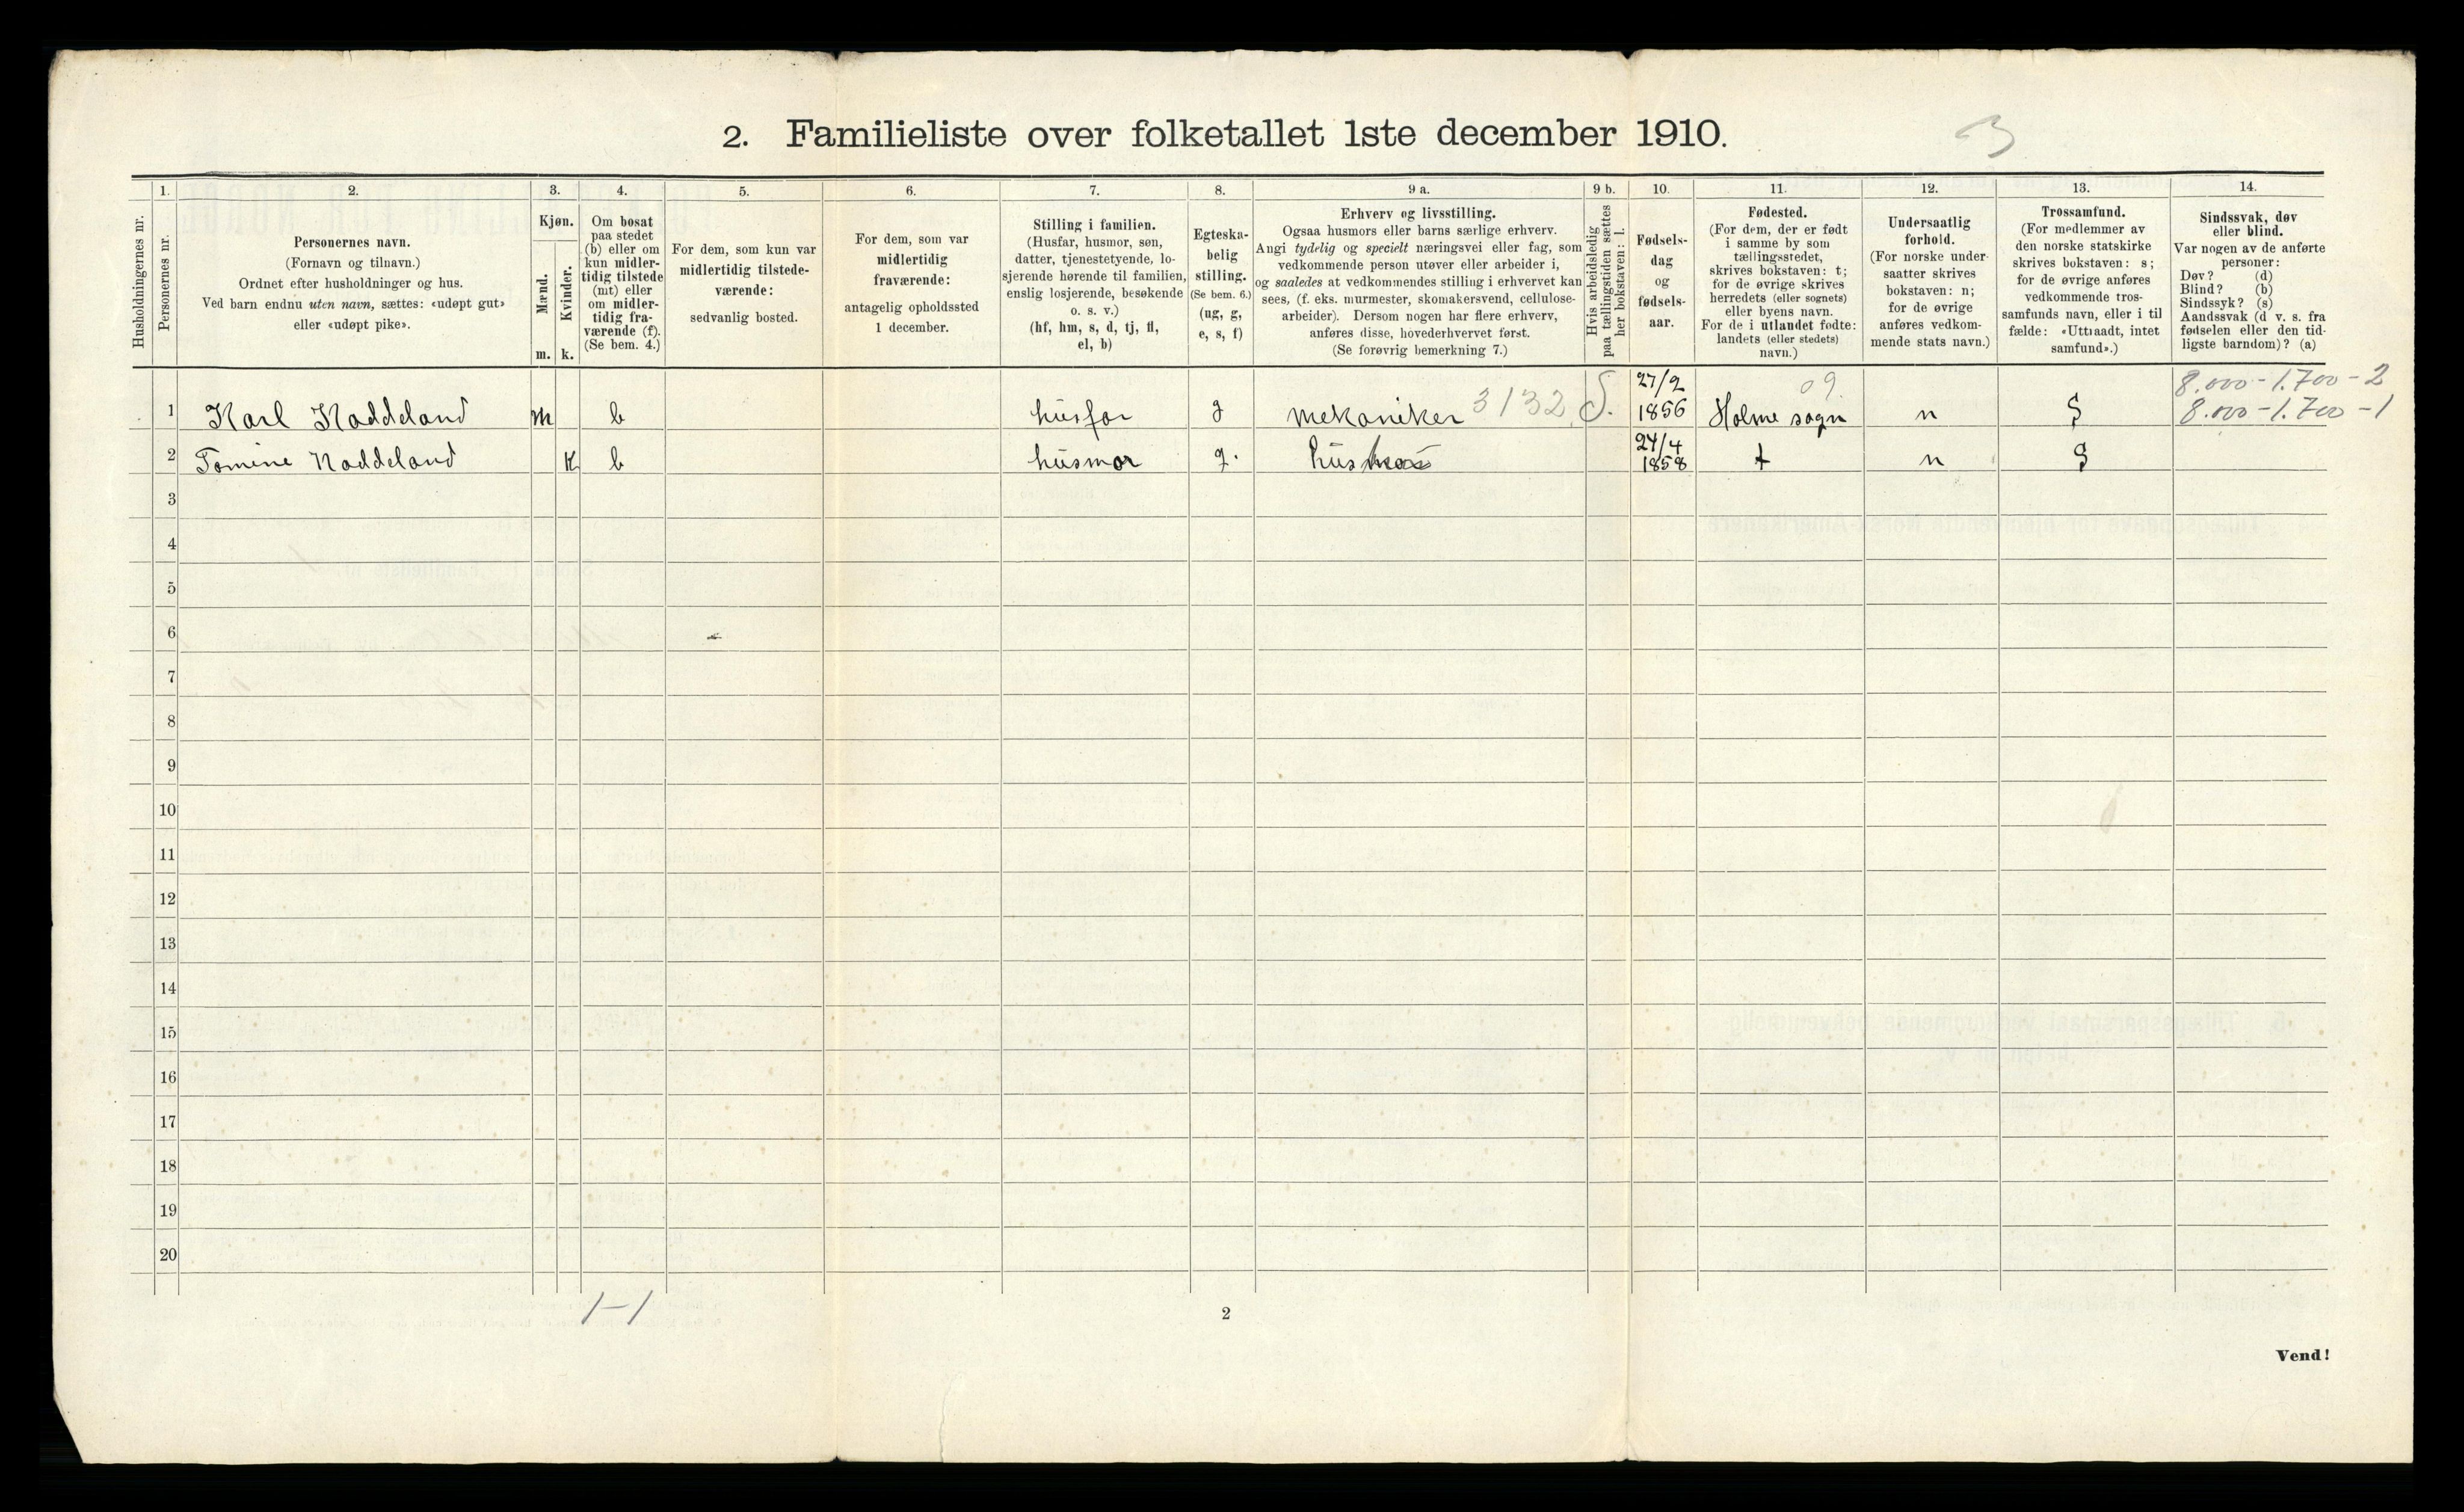 2. Familieliste over folketallet 1ste december 1910.
3
1. 2. 3. 4. 5. 6. 7. 8. 9 a. 9 b. 10. 11. 12. 13. 14.
Husholdningernes nr.
Personernes nr.
Personernes navn.
(Fornavn og tilnavn.)
Ordnet efter husholdninger og hus.
Ved barn endnu uten navn, sættes: «udøpt gut»
eller «udøpt pike».
Kjøn.
Mænd.
Kvinder.
m. k.
Om bosat
paa stedet
(b) eller om
kun midler-
tidig tilstede
(mt) eller
om midler-
tidig fra-
værende (f).
(Se bem. 4.)
For dem, som kun var
midlertidig tilstede-
værende:
sedvanlig bosted.
For dem, som var
midlertidig
fraværende:
antagelig opholdssted
1 december.
Stilling i familien.
(Husfar, husmor, søn,
datter, tjenestetyende, lo-
sjerende hørende til familien,
enslig losjerende, besøkende
o. s. v.)
(hf, hm, s, d, tj, fl,
el, b)
Egteska-
belig
stilling.
(Se bem. 6.)
(ug, g,
e, s, f)
Erhverv og livsstilling.
Ogsaa husmors eller barns særlige erhverv.
Angi tydelig og specielt næringsvei eller fag, som
vedkommende person utøver eller arbeider i,
og saaledes at vedkommendes stilling i erhvervet kan
sees, (f. eks. murmester, skomakersvend, cellulose-
arbeider). Dersom nogen har flere erhverv,
anføres disse, hovederhvervet først.
(Se forøvrig bemerkning 7.)
Hvis arbeidsledig
paa tællingstiden sættes
her bokstaven: l.
Fødsels-
dag
og
fødsels-
aar.
Fødested.
(For dem, der er født
i samme by som
tællingsstedet,
skrives bokstaven: t;
for de øvrige skrives
herredets (eller sognets)
eller byens navn.
For de i utlandet fødte:
landets (eller stedets)
navn.)
Undersaatlig
forhold.
(For norske under-
saatter skrives
bokstaven: n;
for de øvrige
anføres vedkom-
mende stats navn.)
Trossamfund.
(For medlemmer av
den norske statskirke
skrives bokstaven: s;
for de øvrige anføres
vedkommende tros-
samfunds navn, eller i til
fælde: «Uttraadt, intet
samfund».)
Sindssvak, døv
eller blind.
Var nogen av de anførte
personer:
Døv? (d)
Blind? (b)
Sindssyk? (s)
Aandssvak (d v. s. fra
fødselen eller den tid-
ligste barndom)? (a)
27/2 09. 8.000-1.700-2
1 Karl Haddeland m b husfar g mekaniker 3132 S. 1856 Holme sogn n S 8.000-1.700-1
24/4
2 Tomine Haddeland k b husmor g. 1858 t n S
3
4
5
6
7
8
9
10
11
12
13
14
15
16
17
18
19
20
1-1
2
Vend!